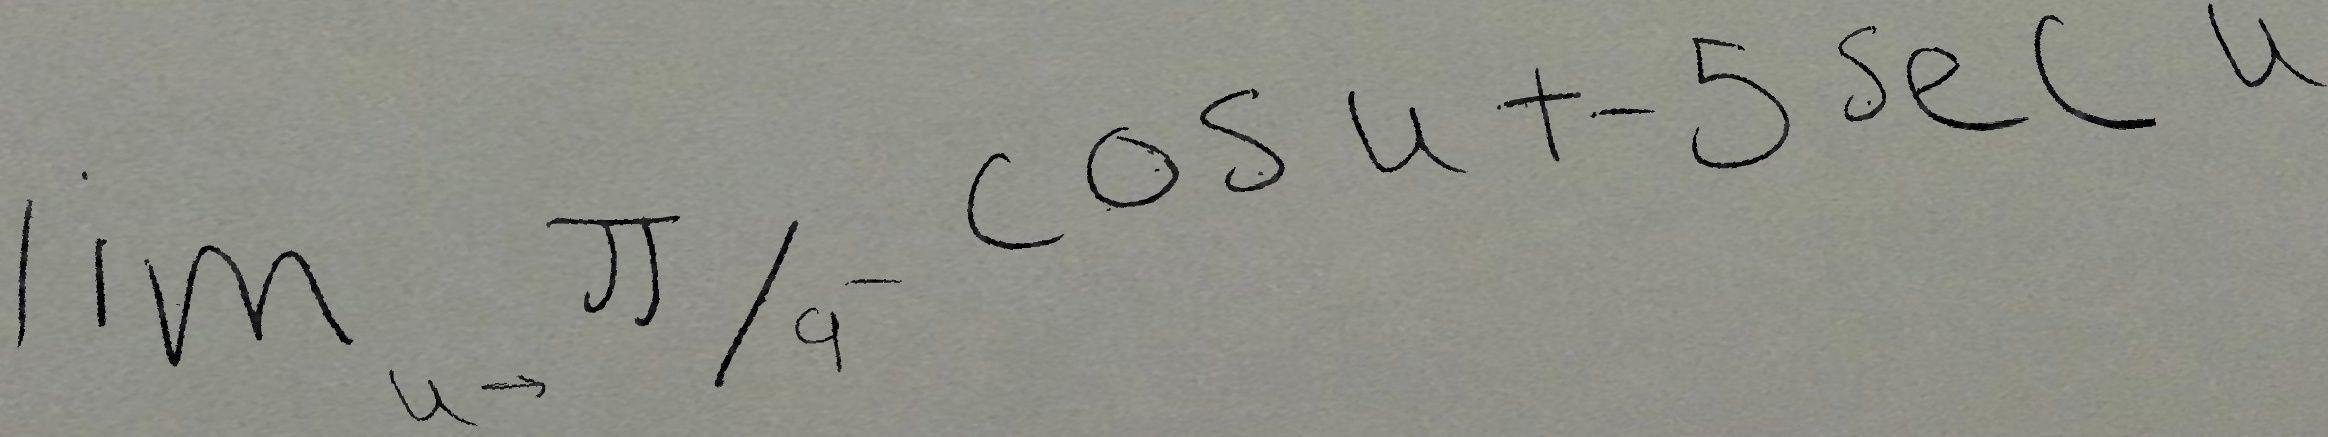 lim u→π/9⁻ cos u + -5 sec u